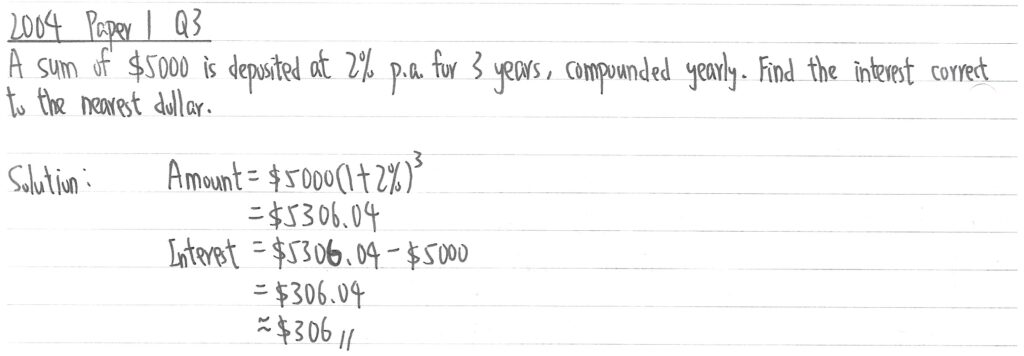 2004 Paper 1 Q3
A sum of $5000 is deposited at 2% p.a. for 3 years, compounded yearly. Find the interest correct
to the nearest dollar.
Solution: Amount = $5000(1+2%)³
= $5306.04
Interest = $5306.04 - $5000
= $306.04
≈ $306 //